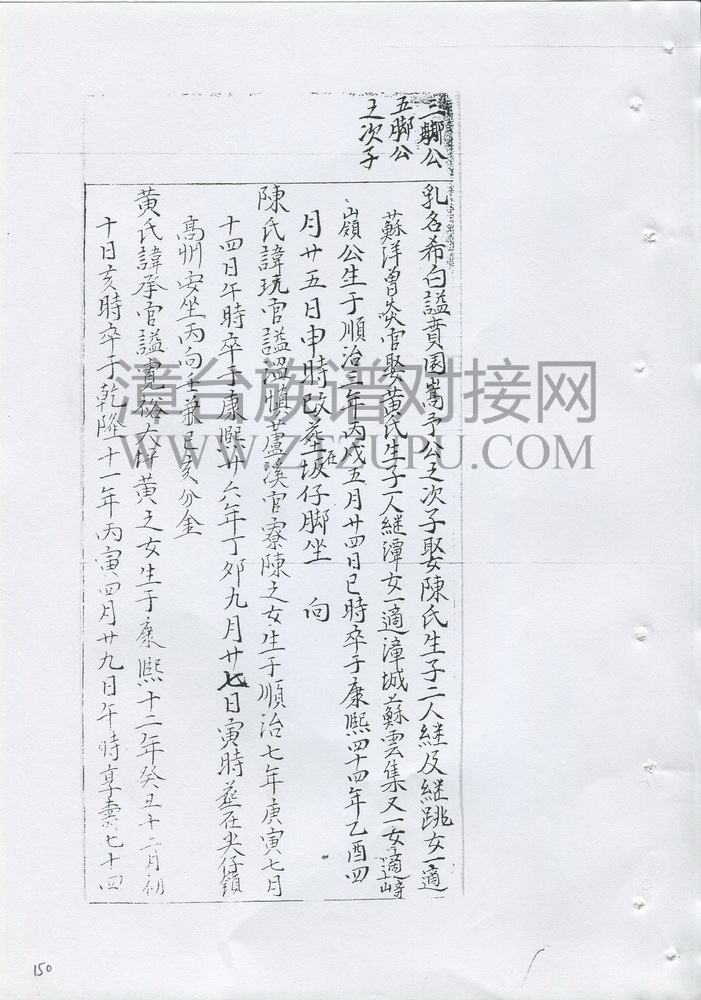 三腳公
五腳公
之次子
乳名希白諡賁園嵩予公之次子娶陳氏生子二人継及継跳女一適
蘇洋曾炎官娶黃氏生子一人継潭女一適漳城蘇雲集又一女適崎
嶺公生于順治三年丙戌五月廿四日巳時卒于康熙四十四年乙酉四
月廿五日申時改葬在坂仔腳坐 向
陳氏諱琓官諡溫慎蘆溪官寮陳之女生于順治七年庚寅七月
十四日午時卒于康熙廿六年丁卯九月廿七日寅時葬在尖仔嶺
高州安坐丙向壬兼巳亥分金
黃氏諱承官諡寬裕大 黃之女生于康熙十二年癸丑十二月初
十日亥時卒于乾隆十一年丙寅四月廿九日午時享壽七十四
漳台族谱对接网
WWW.ZTZUPU.COM
150